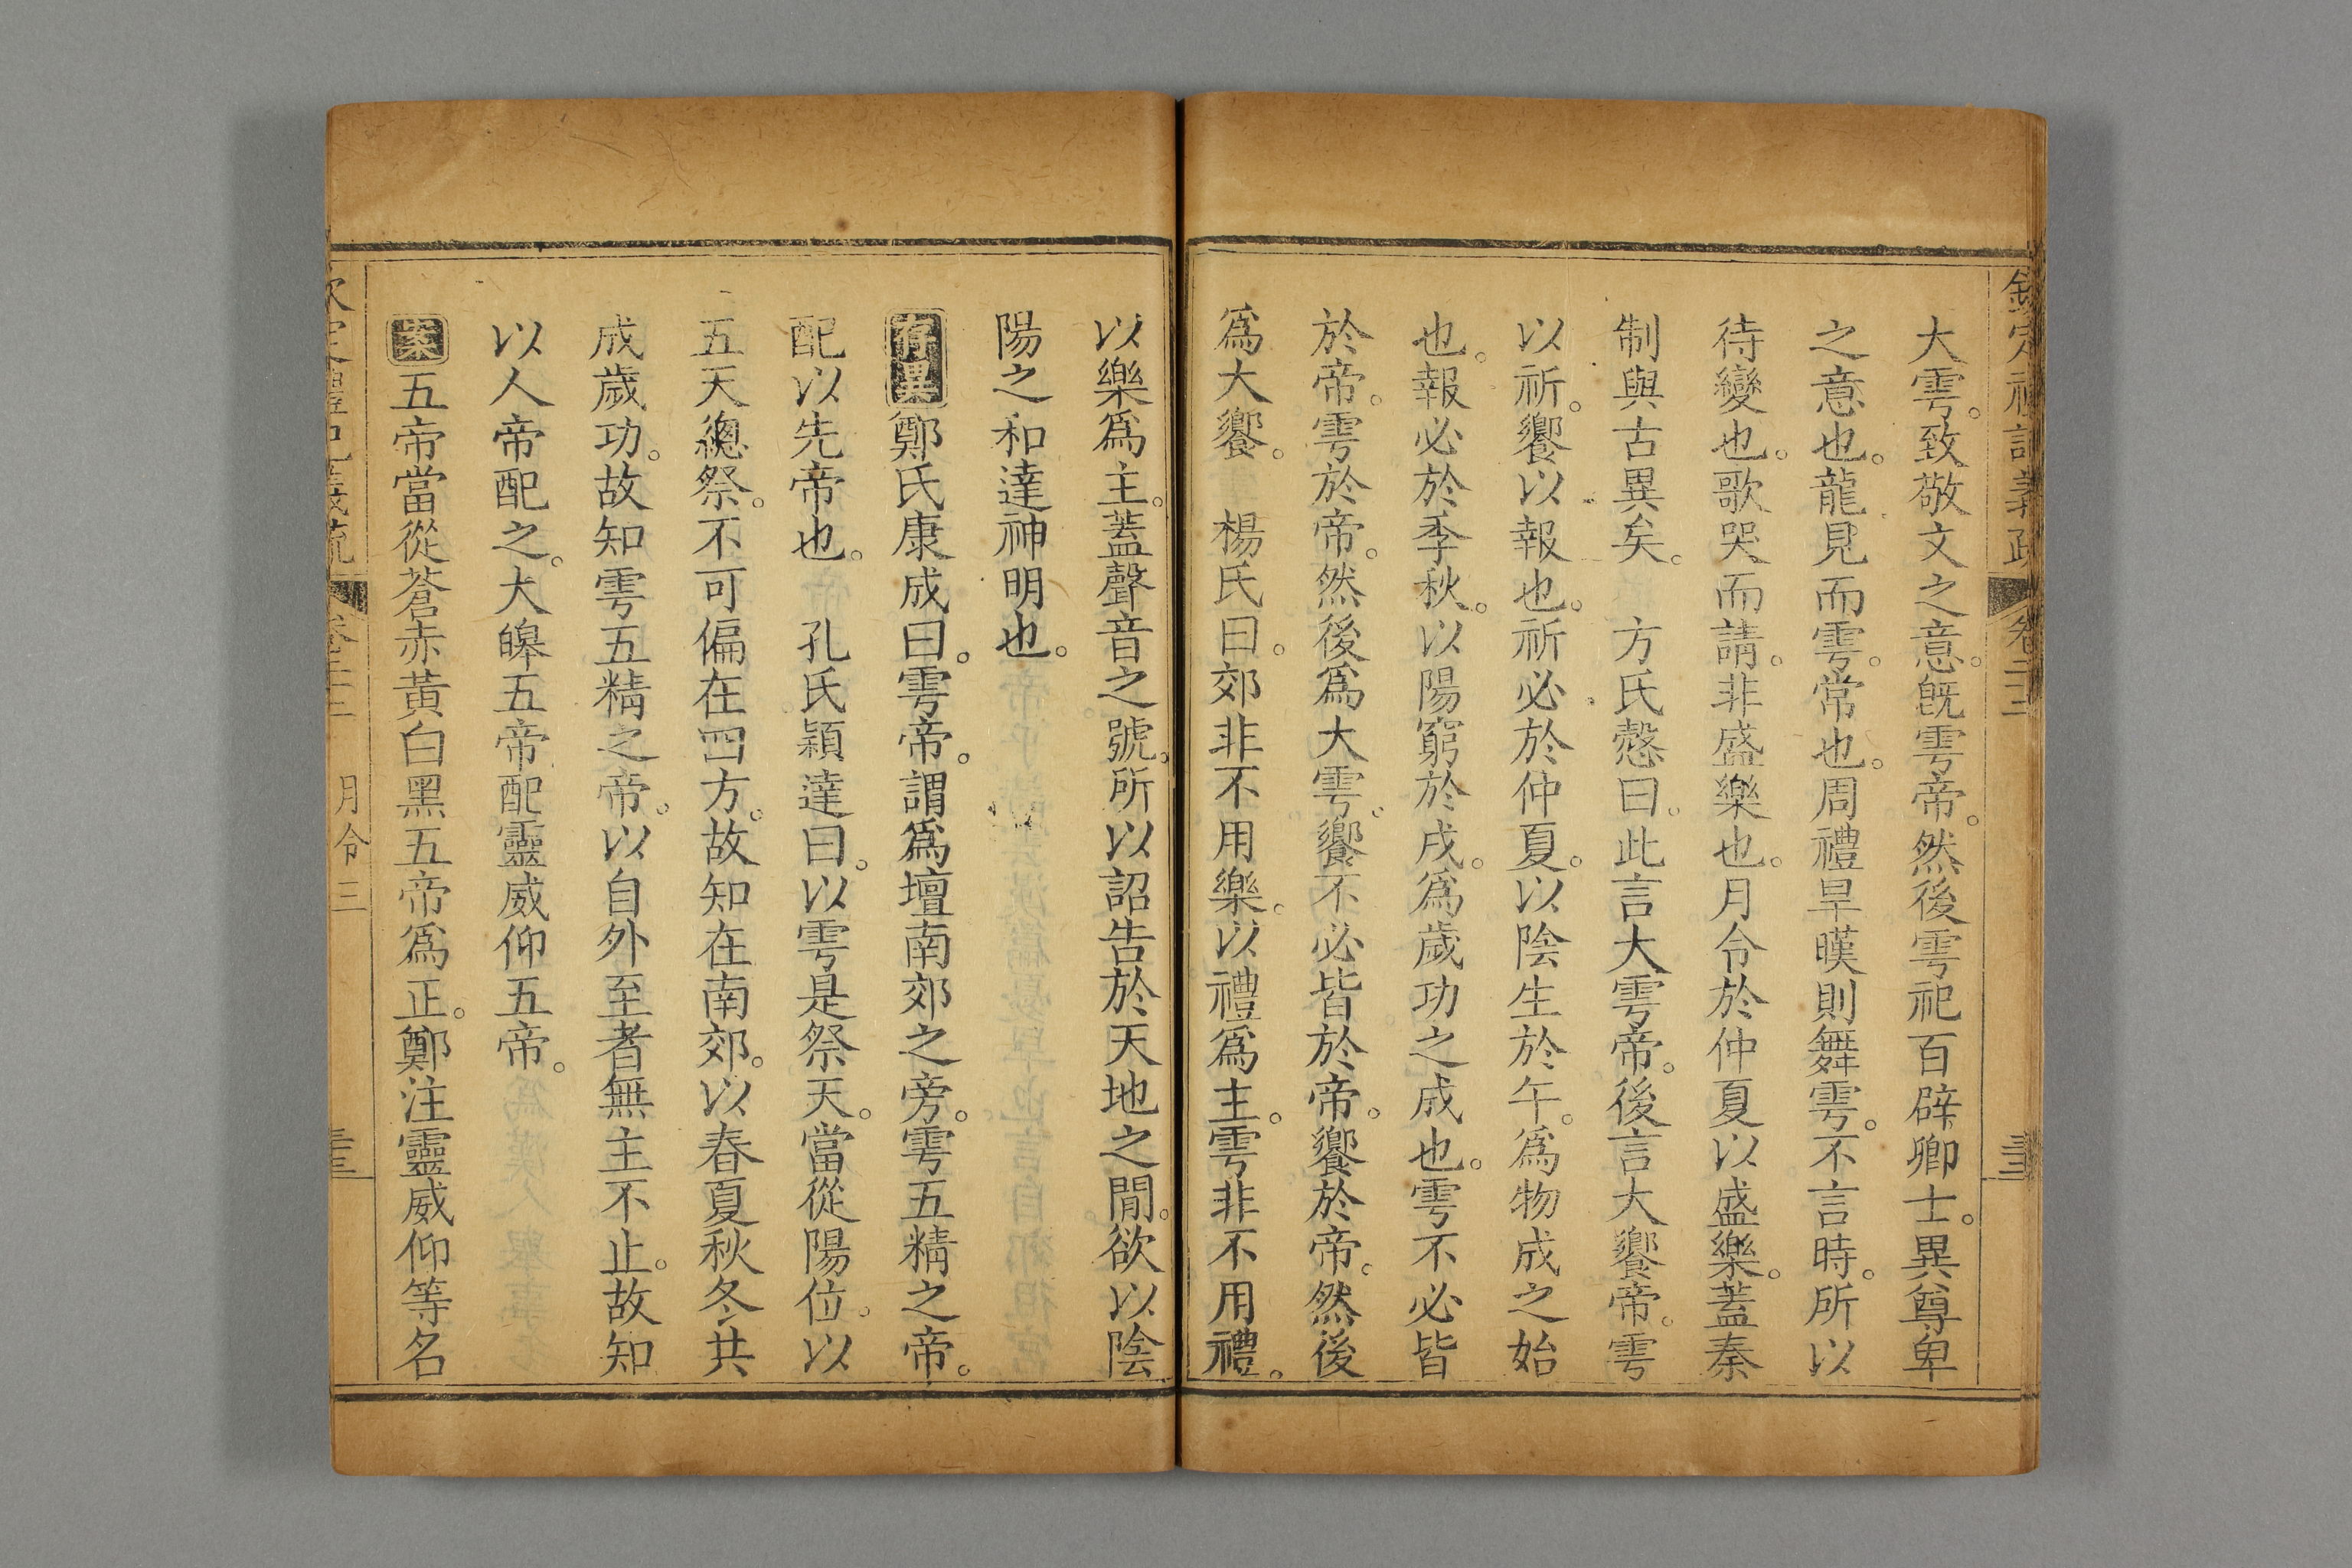 欽定禮記義疏 卷二十二
大雩。致敬文之意。旣雩帝。然後雩祀百辟卿士。異尊卑
之意也。龍見而雩。常也。周禮旱暵則舞雩。不言時。所以
待變也。歌哭而請。非盛樂也。月令於仲夏以盛樂。蓋秦
制與古異矣。 方氏慤曰。此言大雩帝。後言大饗帝。雩
以祈。饗以報也。祈必於仲夏。以陰生於午。爲物成之始
也。報必於季秋。以陽窮於戌。爲歲功之成也。雩不必皆
於帝。雩於帝。然後爲大雩。饗不必皆於帝。饗於帝。然後
爲大饗。 楊氏曰。郊非不用樂。以禮爲主。雩非不用禮。
以樂爲主。蓋聲音之號。所以詔告於天地之閒。欲以陰
陽之和達神明也。
存異 鄭氏康成曰。雩帝。謂爲壇南郊之旁。雩五精之帝。
配以先帝也。 孔氏穎達曰。以雩是祭天。當從陽位。以
五天總祭。不可偏在四方。故知在南郊。以春夏秋冬共
成歲功。故知雩五精之帝。以自外至者無主不止。故知
以人帝配之。大皞五帝配靈威仰五帝。
案 五帝當從蒼赤黃白黑五帝爲正。鄭注靈威仰等名
欽定禮記義疏 月令三